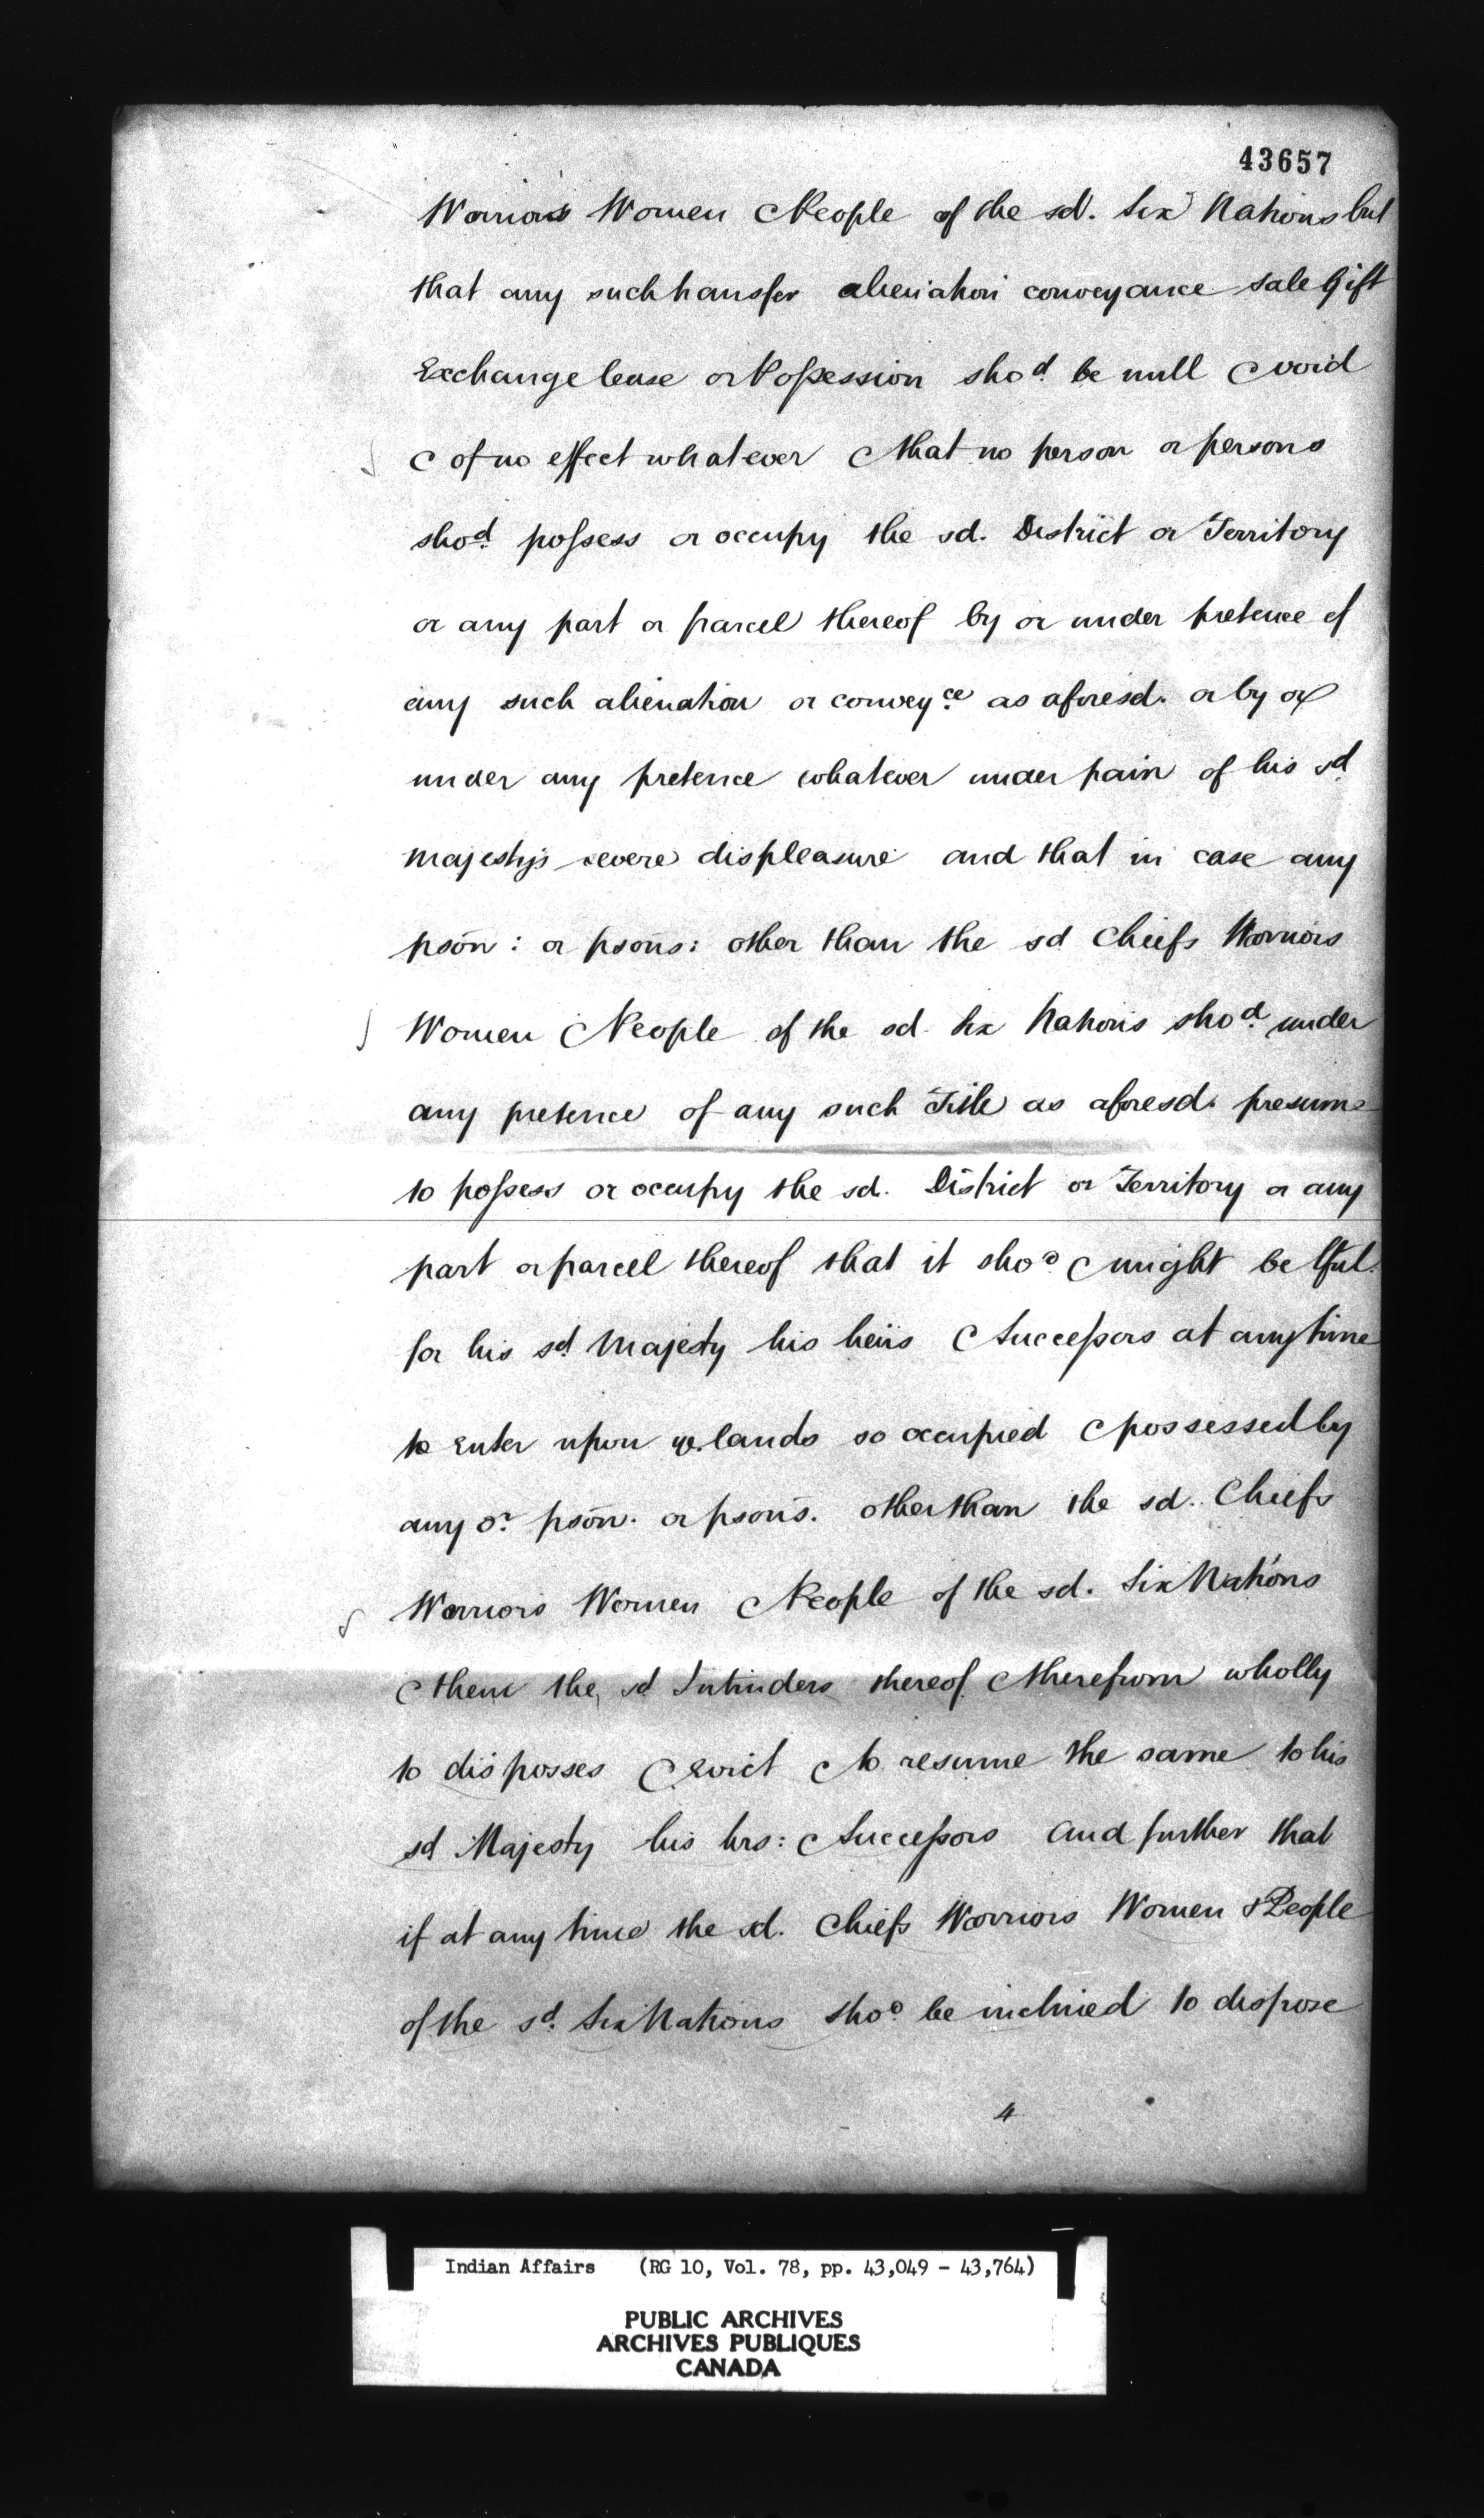 43657
Warriors Women & People of the sd. Six Nations but
that any such transfer alienation conveyance sale Gift
Exchange lease or Poſsession shod. be null & void
& of no effect whatever & that no person or persons
shod. poſsess or occupy the sd. District or Territory
or any part or parcel thereof by or under pretence of
any such alienation or conveyce. as aforesd. or by or
under any pretence whatever under pain of his sd.
Majesty's severe displeasure and that in case any
pson: or psons: other than the sd Chiefs Warriors
Women & People of the sd. Six Nations shod. under
any pretence of any such Title as aforesd. presume
to poſsess or occupy the sd. District or Territory or any
part or parcel thereof that it shod. & might be lful.
for his sd. Majesty his heirs & Succeſsors at any time
to Enter upon ye. lands so occupied & possessed by
any or. pson. or psons. other than the sd. Chiefs
Warriors Women & People of the sd. Six Nations
& them the sd Intruders thereof & therefrom wholly
to disposses & Evict & to resume the same to his
sd Majesty his hrs: & Succeſsors and further that
if at any time the sd. Chiefs Warriors Women & People
of the sd. Six Nations shod. be inclined to dispose
4
Indian Affairs (RG 10, Vol. 78, pp. 43,049 - 43,764)
PUBLIC ARCHIVES
ARCHIVES PUBLIQUES
CANADA